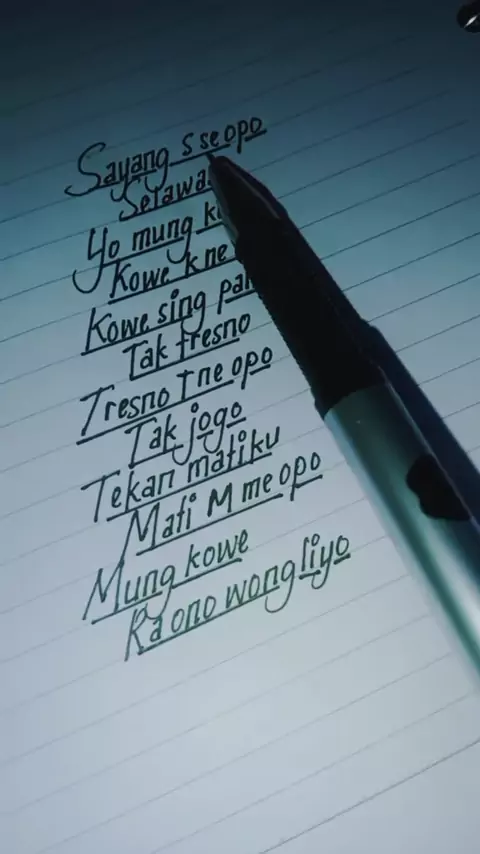 Sayang s se opo
Yo mung
Kowe k ne
Kowe sing
Tak tresno
Tresno T ne opo
Tak jogo
Tekan matiku
Mati M me opo
Mung kowe
Ra ono wong liyo